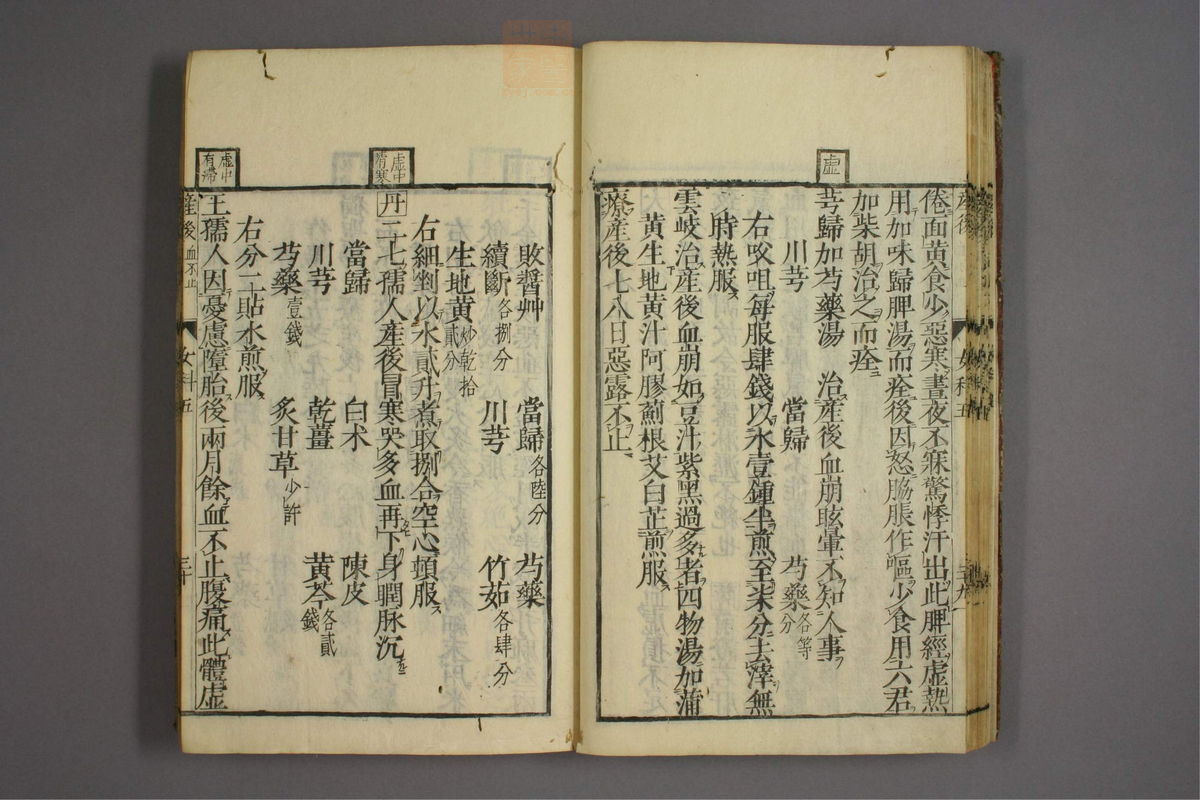 倦面黃食少惡寒晝夜不寐驚悸汗出此脾經虛熱
用加味歸脾湯而痊後因怒脇脹作嘔少食用六君
加柴胡治之而痊
虛
芎歸加芍藥湯 治產後血崩眩暈不知人事
川芎 當歸 芍藥各等分
右㕮咀每服肆錢以水壹鍾半煎至柒分去滓無
時熱服
雲岐治產後血崩如豆汁紫黑過多者四物湯加蒲
黃生地黃汁阿膠薊根艾白芷煎服
療產後七八日惡露不止
敗醬艸 當歸各陸分 芍藥
續斷各捌分 川芎 竹茹各肆分
生地黃炒乾拾貳分
右細剉以水貳升煮取捌合空心頓服
虛中有寒
丹 二七孺人產後冒寒哭多血再下身䐃脉沉
當歸 白术 陳皮
川芎 乾薑 黃芩各貳錢
芍藥壹錢 炙甘草少許
右分二貼水煎服
虛中有滯
王孺人因憂慮墮胎後兩月餘血不止腹痛此體虛
產後 血不止 女科五 三十